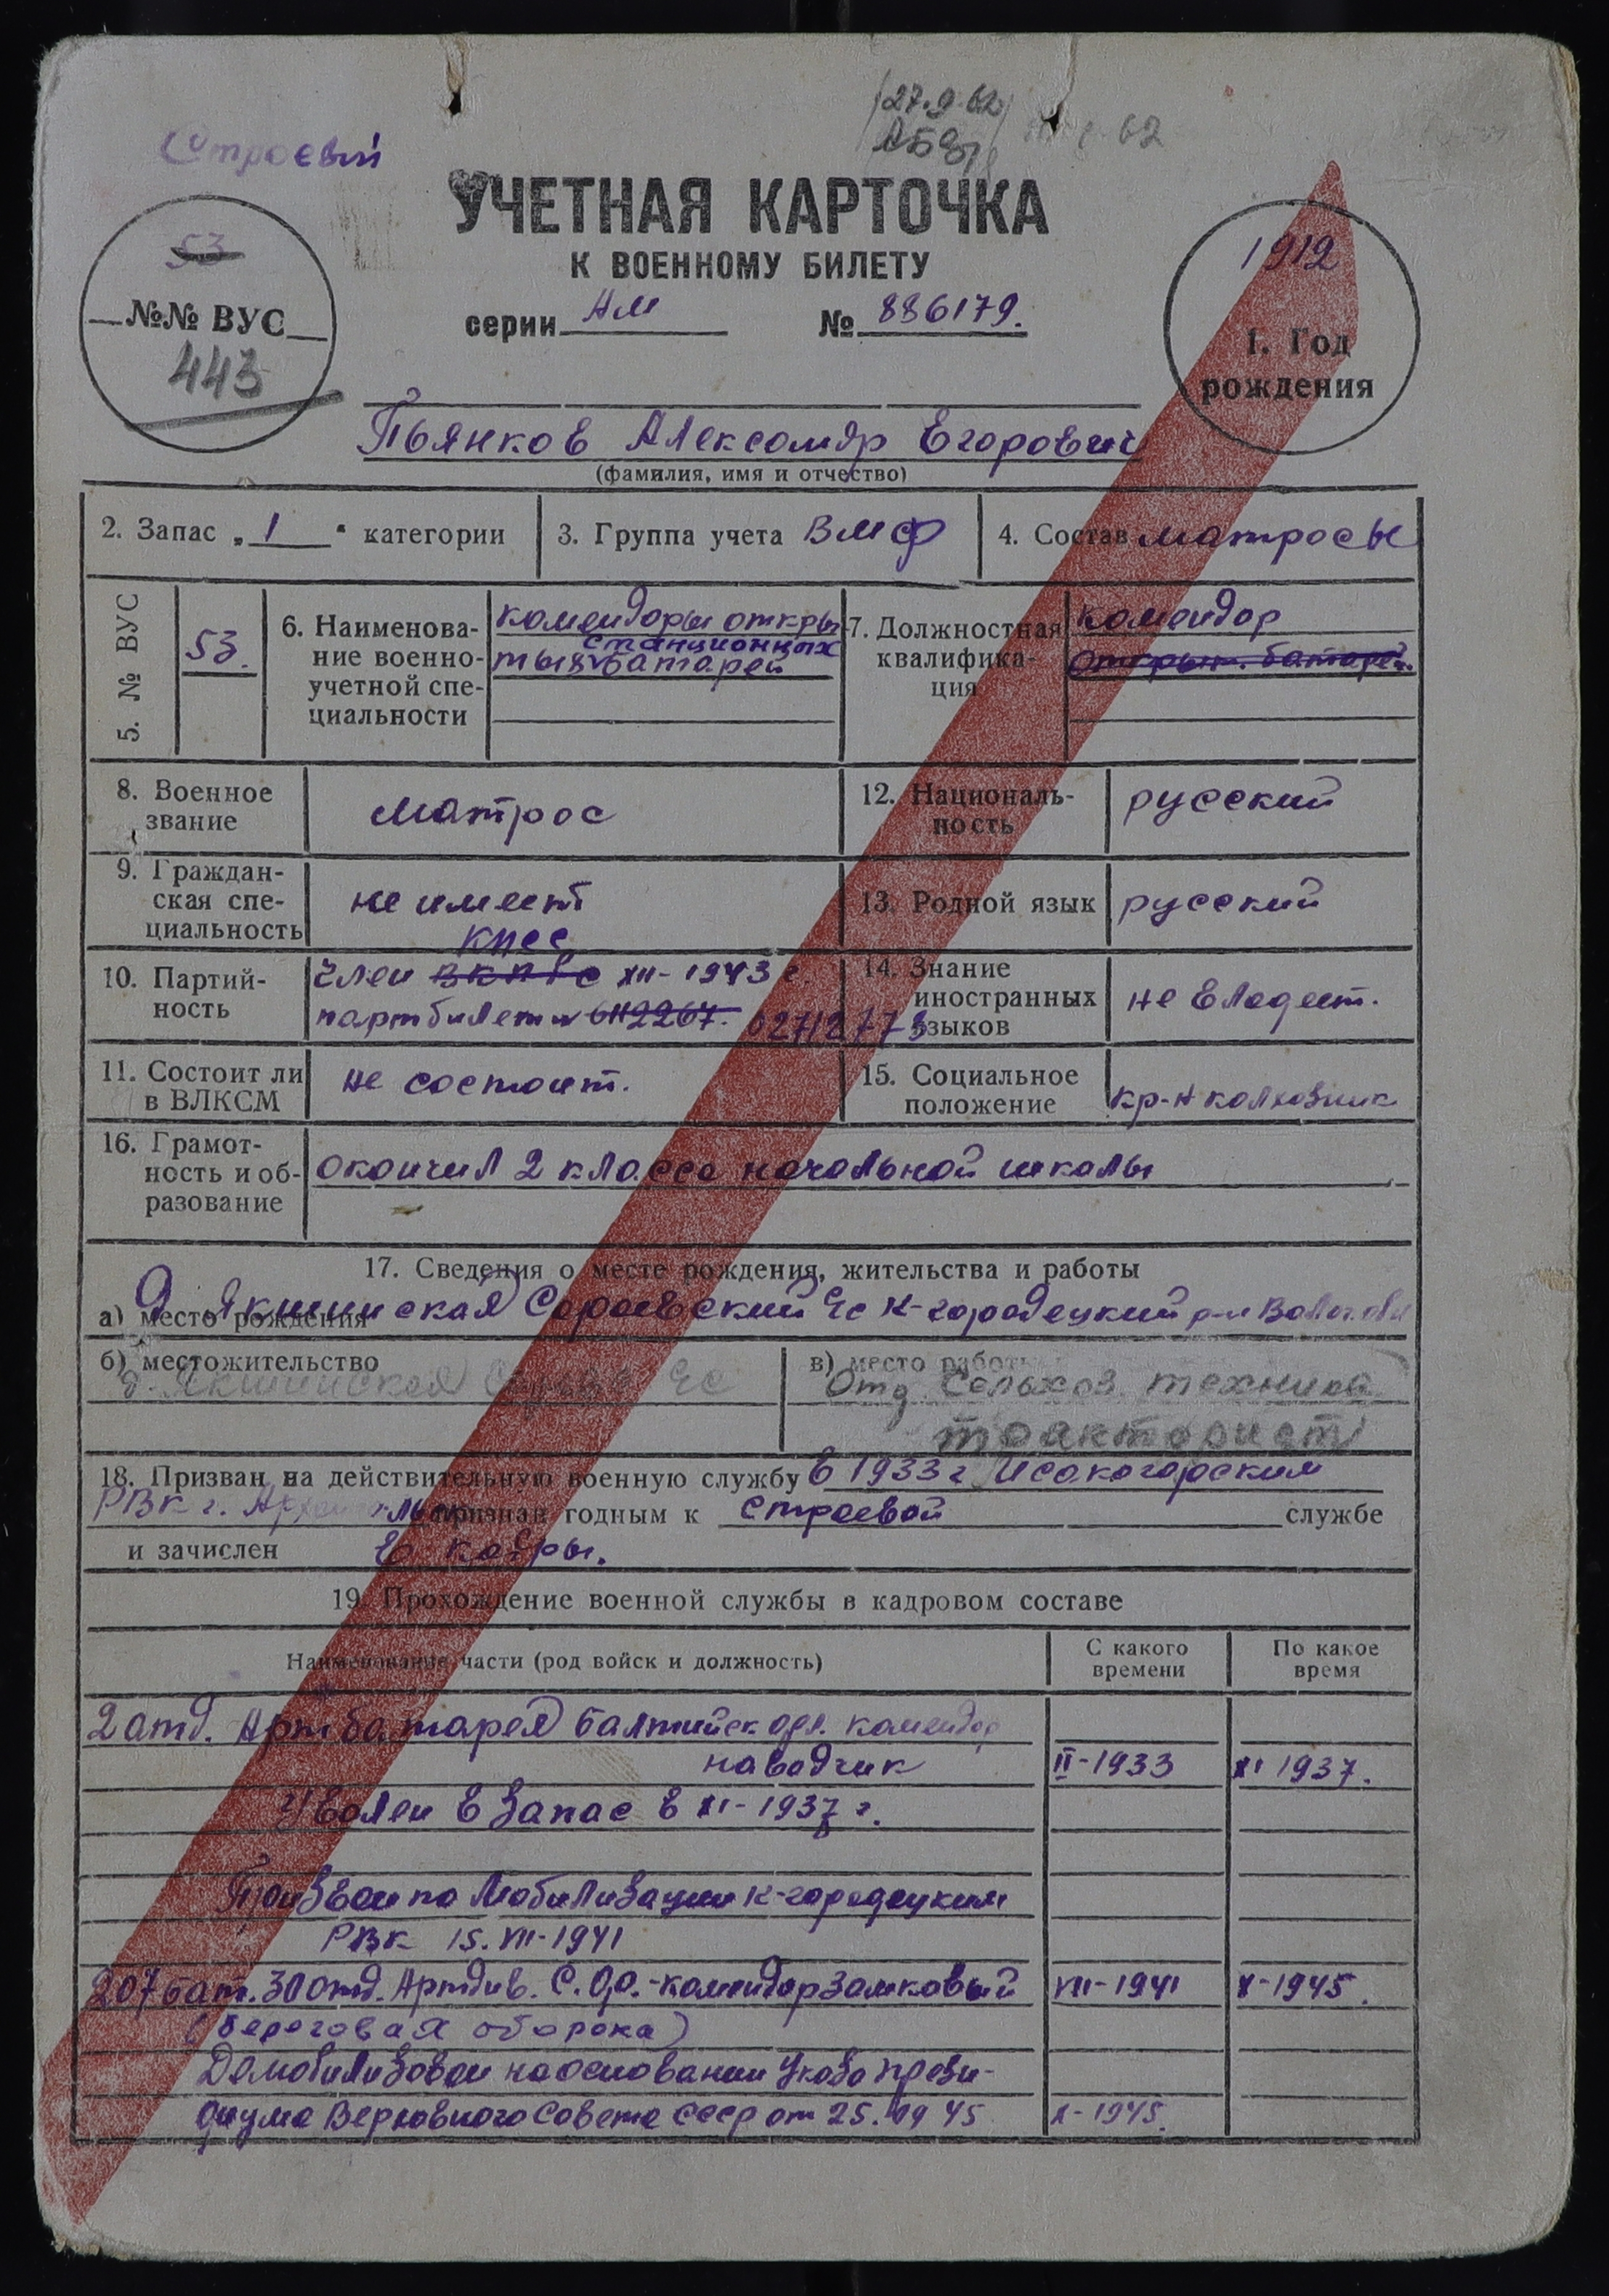 27.9.62
62
Строевый
УЧЕТНАЯ КАРТОЧКА
К ВОЕННОМУ БИЛЕТУ
серии АМ № 886179.
53
№№ ВУС
443
1912
1. Год
рождения
Пьянков Александр Егорович
(фамилия, имя и отчество)
2. Запас „1“ категории
3. Группа учета ВМФ
4. Состав матросы
5. № ВУС
53.
6. Наименова-
ние военно-
учетной спе-
циальности
комендоры откры
станционных
тых батарей
7. Должностная
квалифика-
ция
комендор
открыт. батарей.
8. Военное
звание
матрос
12. Националь-
ность
русский
9. Граждан-
ская спе-
циальность
не имеет
13. Родной язык
русский
10. Партий-
ность
КПСС
член ВКПб с XII-1943 г.
партбилет № 6112267. 02712773
14. Знание
иностранных
языков
не владеет.
11. Состоит ли
в ВЛКСМ
не состоит.
15. Социальное
положение
кр-н колхозник
16. Грамот-
ность и об-
разование
окончил 2 класса начальной школы
17. Сведения о месте рождения, жительства и работы
а) место рождения
д Якшинская Сараевский с/с К-городецкий р-н Вологодс
б) местожительство
д. Якшинская с/с
в) место работы
Отд. Сельхоз техника
тракторист
18. Призван на действительную военную службу в 1933 г Исакогорским
РВК г. Архангельск признан годным к строевой службе
и зачислен в кадры.
19. Прохождение военной службы в кадровом составе
Наименование части (род войск и должность)
С какого
времени
По какое
время
2 отд. Арт батарея Балтийск. комендор
наводчик II-1933 XI 1937.
Уволен в запас в XI-1937 г.
Призван по Мобилизации К-городецким
РВК 15.VII-1941
207 бат. 30 отд. Артдив. С.О.Р.-комендор замковый VII-1941 X-1945.
(береговая оборона)
Демобилизован на основании Указа Прези-
диума Верховного Совета СССР от 25.1945 X-1945.